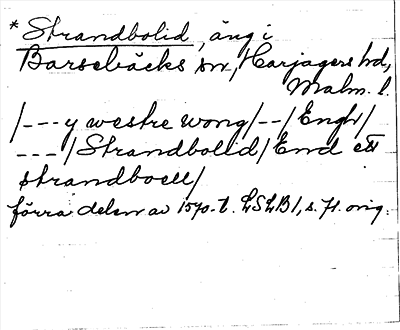 * Strandbolid, äng i
Barsebäcks sn, Harjagers hd,
Malm. l.
/---y westre wong/--/Engh/
---/Strandbolid/Emd ett
strandboell/
förra delen av 1570-t. LSLB1, s. 71. orig.